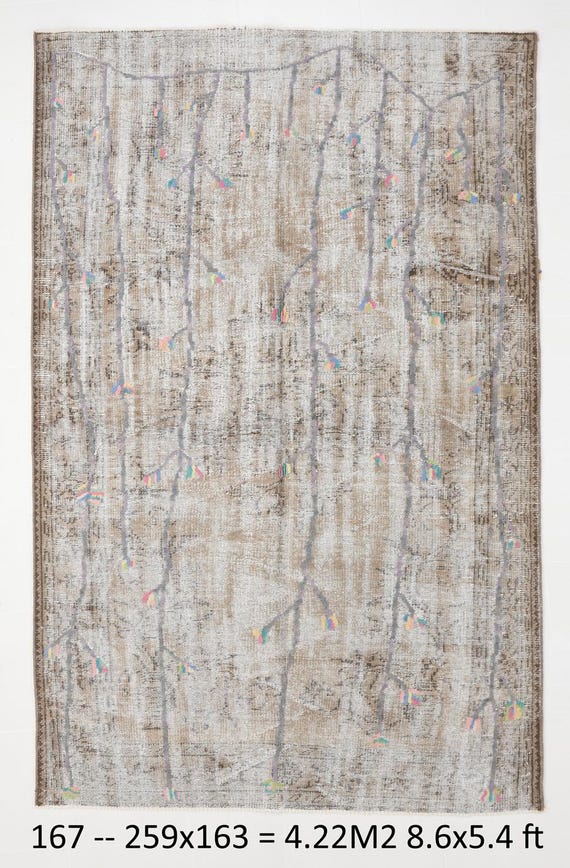 167 -- 259x163 = 4.22M2 8.6x5.4 ft